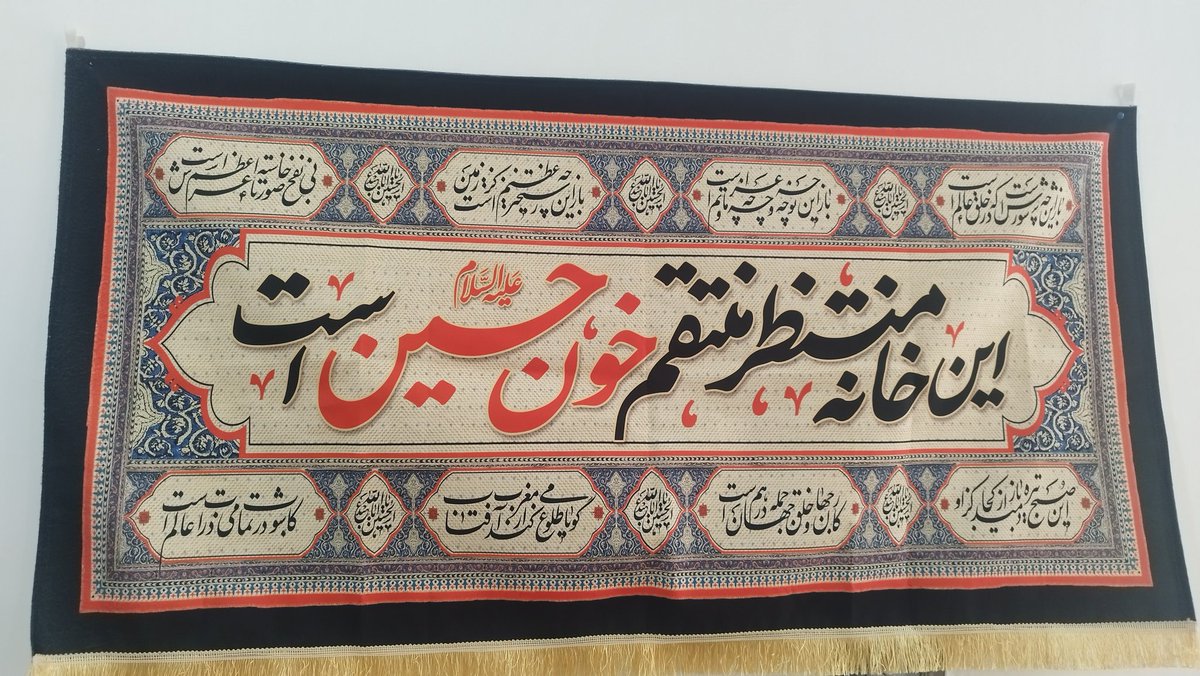 باز این چه شورش است که در خلق عالم است
یا اباعبدالله الحسین
باز این چه نوحه و چه عزا و چه ماتم است
یا اباعبدالله الحسین
باز این چه رستخیز عظیم است کز زمین
یا اباعبدالله الحسین
بی نفخ صور خاسته تا عرش اعظم است
این خانه منتظر منتقم خون حسین علیه السلام است
این صبح تیره باز دمید از کجا کزو
یا اباعبدالله الحسین
کار جهان و خلق جهان جمله در هم است
یا اباعبدالله الحسین
گویا طلوع می کند از مغرب آفتاب
یا اباعبدالله الحسین
کاشوب در تمامی ذرات عالم است